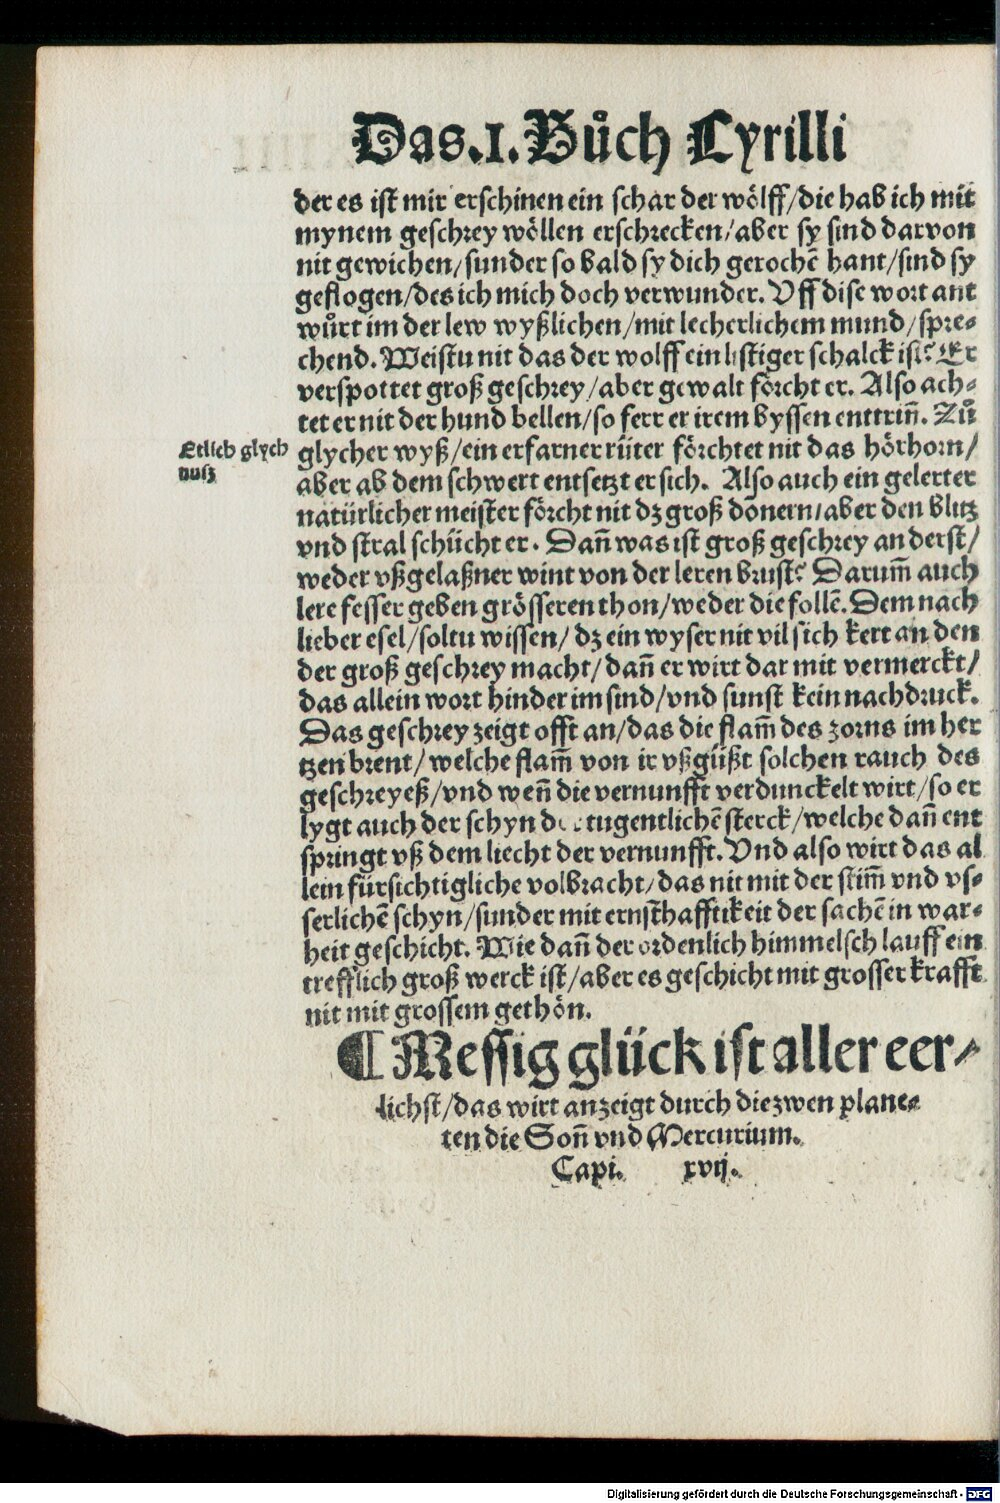 Das.I.Bůch Cyrilli
der es ist mir erschinen ein schar der wölff/die hab ich mit
mynem geschrey wöllen erschrecken/aber sy sind darvon
nit gewichen/sunder so bald sy dich gerochē hant/sind sy
geflogen/des ich mich doch verwunder. Vff dise wort ant
wůrt im der lew wyßlichen/mit lecherlichem mund/spre-
chend. Weistu nit das der wolff ein listiger schalck ist? Er
verspottet groß geschrey/aber gewalt förcht er. Also ach-
tet er nit der hund bellen/so ferr er irem byssen enttrin̄. Zů
Etlich glych
nusz
glycher wyß/ein erfarner rüter förchtet nit das hörhorn/
aber ab dem schwert entsetzt er sich. Also auch ein gelerter
natürlicher meister förcht nit dz groß donern/aber den blitz
vnd stral schücht er. Dan̄ was ist groß geschrey anderst/
weder vßgelaßner wint von der leren brust? Darum̄ auch
lere fesser geben grösseren thon/weder die follē. Dem nach
lieber esel/soltu wissen/ dz ein wyser nit vil sich kert an den
der groß geschrey macht/dan̄ er wirt dar mit vermerckt/
das allein wort hinder im sind/vnd sunst kein nachdruck.
Das geschrey zeigt offt an/das die flam̄ des zorns im her
tzen brent/welche flam̄ von ir vßgüßt solchen rauch des
geschreyeß/vnd wen̄ die vernunfft verdunckelt wirt/so er
lygt auch der schyn der tugentlichē sterck/welche dan̄ ent
springt vß dem liecht der vernunfft. Vnd also wirt das al
lein fürsichtigliche volbracht/das nit mit der stim̄ vnd vs-
serlichē schyn/sunder mit ernsthafftikeit der sachē in war-
heit geschicht. Wie dan̄ der ordenlich himmelsch lauff ein
trefflich groß werck ist/aber es geschicht mit grosser krafft
nit mit grossem gethön.
¶ Messig glück ist aller eer-
lichst/das wirt anzeigt durch die zwen plane-
ten die Son̄ vnd Mercurium.
Capi. xvij.
Digitalisierung gefördert durch die Deutsche Forschungsgemeinschaft - DFG